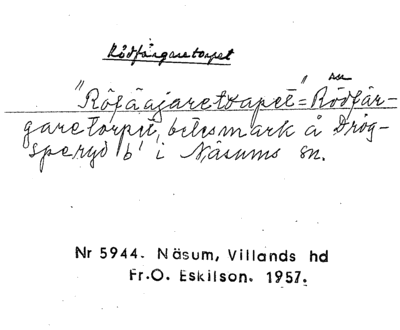 Rödfärgaretorpet
"Röfäajaretorpet" = Rödfär-
garetorpet, betesmark å Drög-
speryd b' i Näsums sn.
Nr 5944. Näsum, Villands hd
Fr.O. Eskilson. 1957.